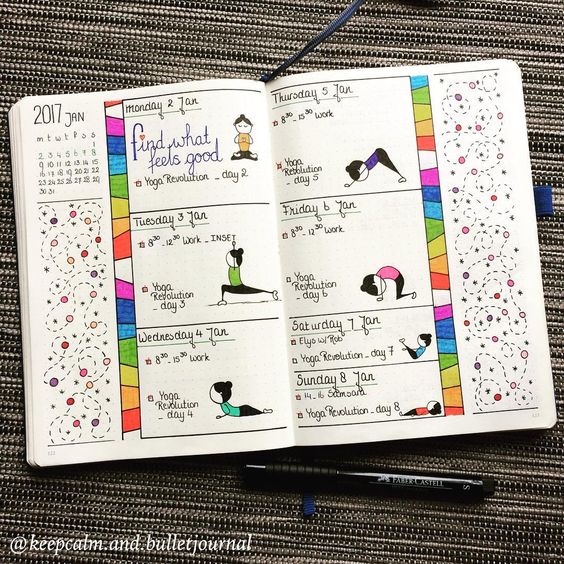 2017 JAN
m t w t f s s
1
2 3 4 5 6 7 8
9 10 11 12 13 14 15
16 17 18 19 20 21 22
23 24 25 26 27 28 29
30 31
monday 2 Jan
find what
feels good
Yoga Revolution - day 2
Tuesday 3 Jan
8³⁰ - 12³⁰ Work - INSET
Yoga
Revolution
- day 3
Wednesday 4 Jan
8³⁰ - 15³⁰ Work
Yoga
Revolution
- day 4
Thursday 5 Jan
8³⁰ - 15³⁰ Work
Yoga
Revolution
day 5
Friday 6 Jan
8³⁰ - 12³⁰ Work
Yoga
Revolution
- day 6
Saturday 7 Jan
Elys w/ Rob
Yoga Revolution - day 7
Sunday 8 Jan
14 - 16 Samsara
Yoga Revolution - day 8
FABER-CASTELL
S
@keepcalm.and.bulletjournal